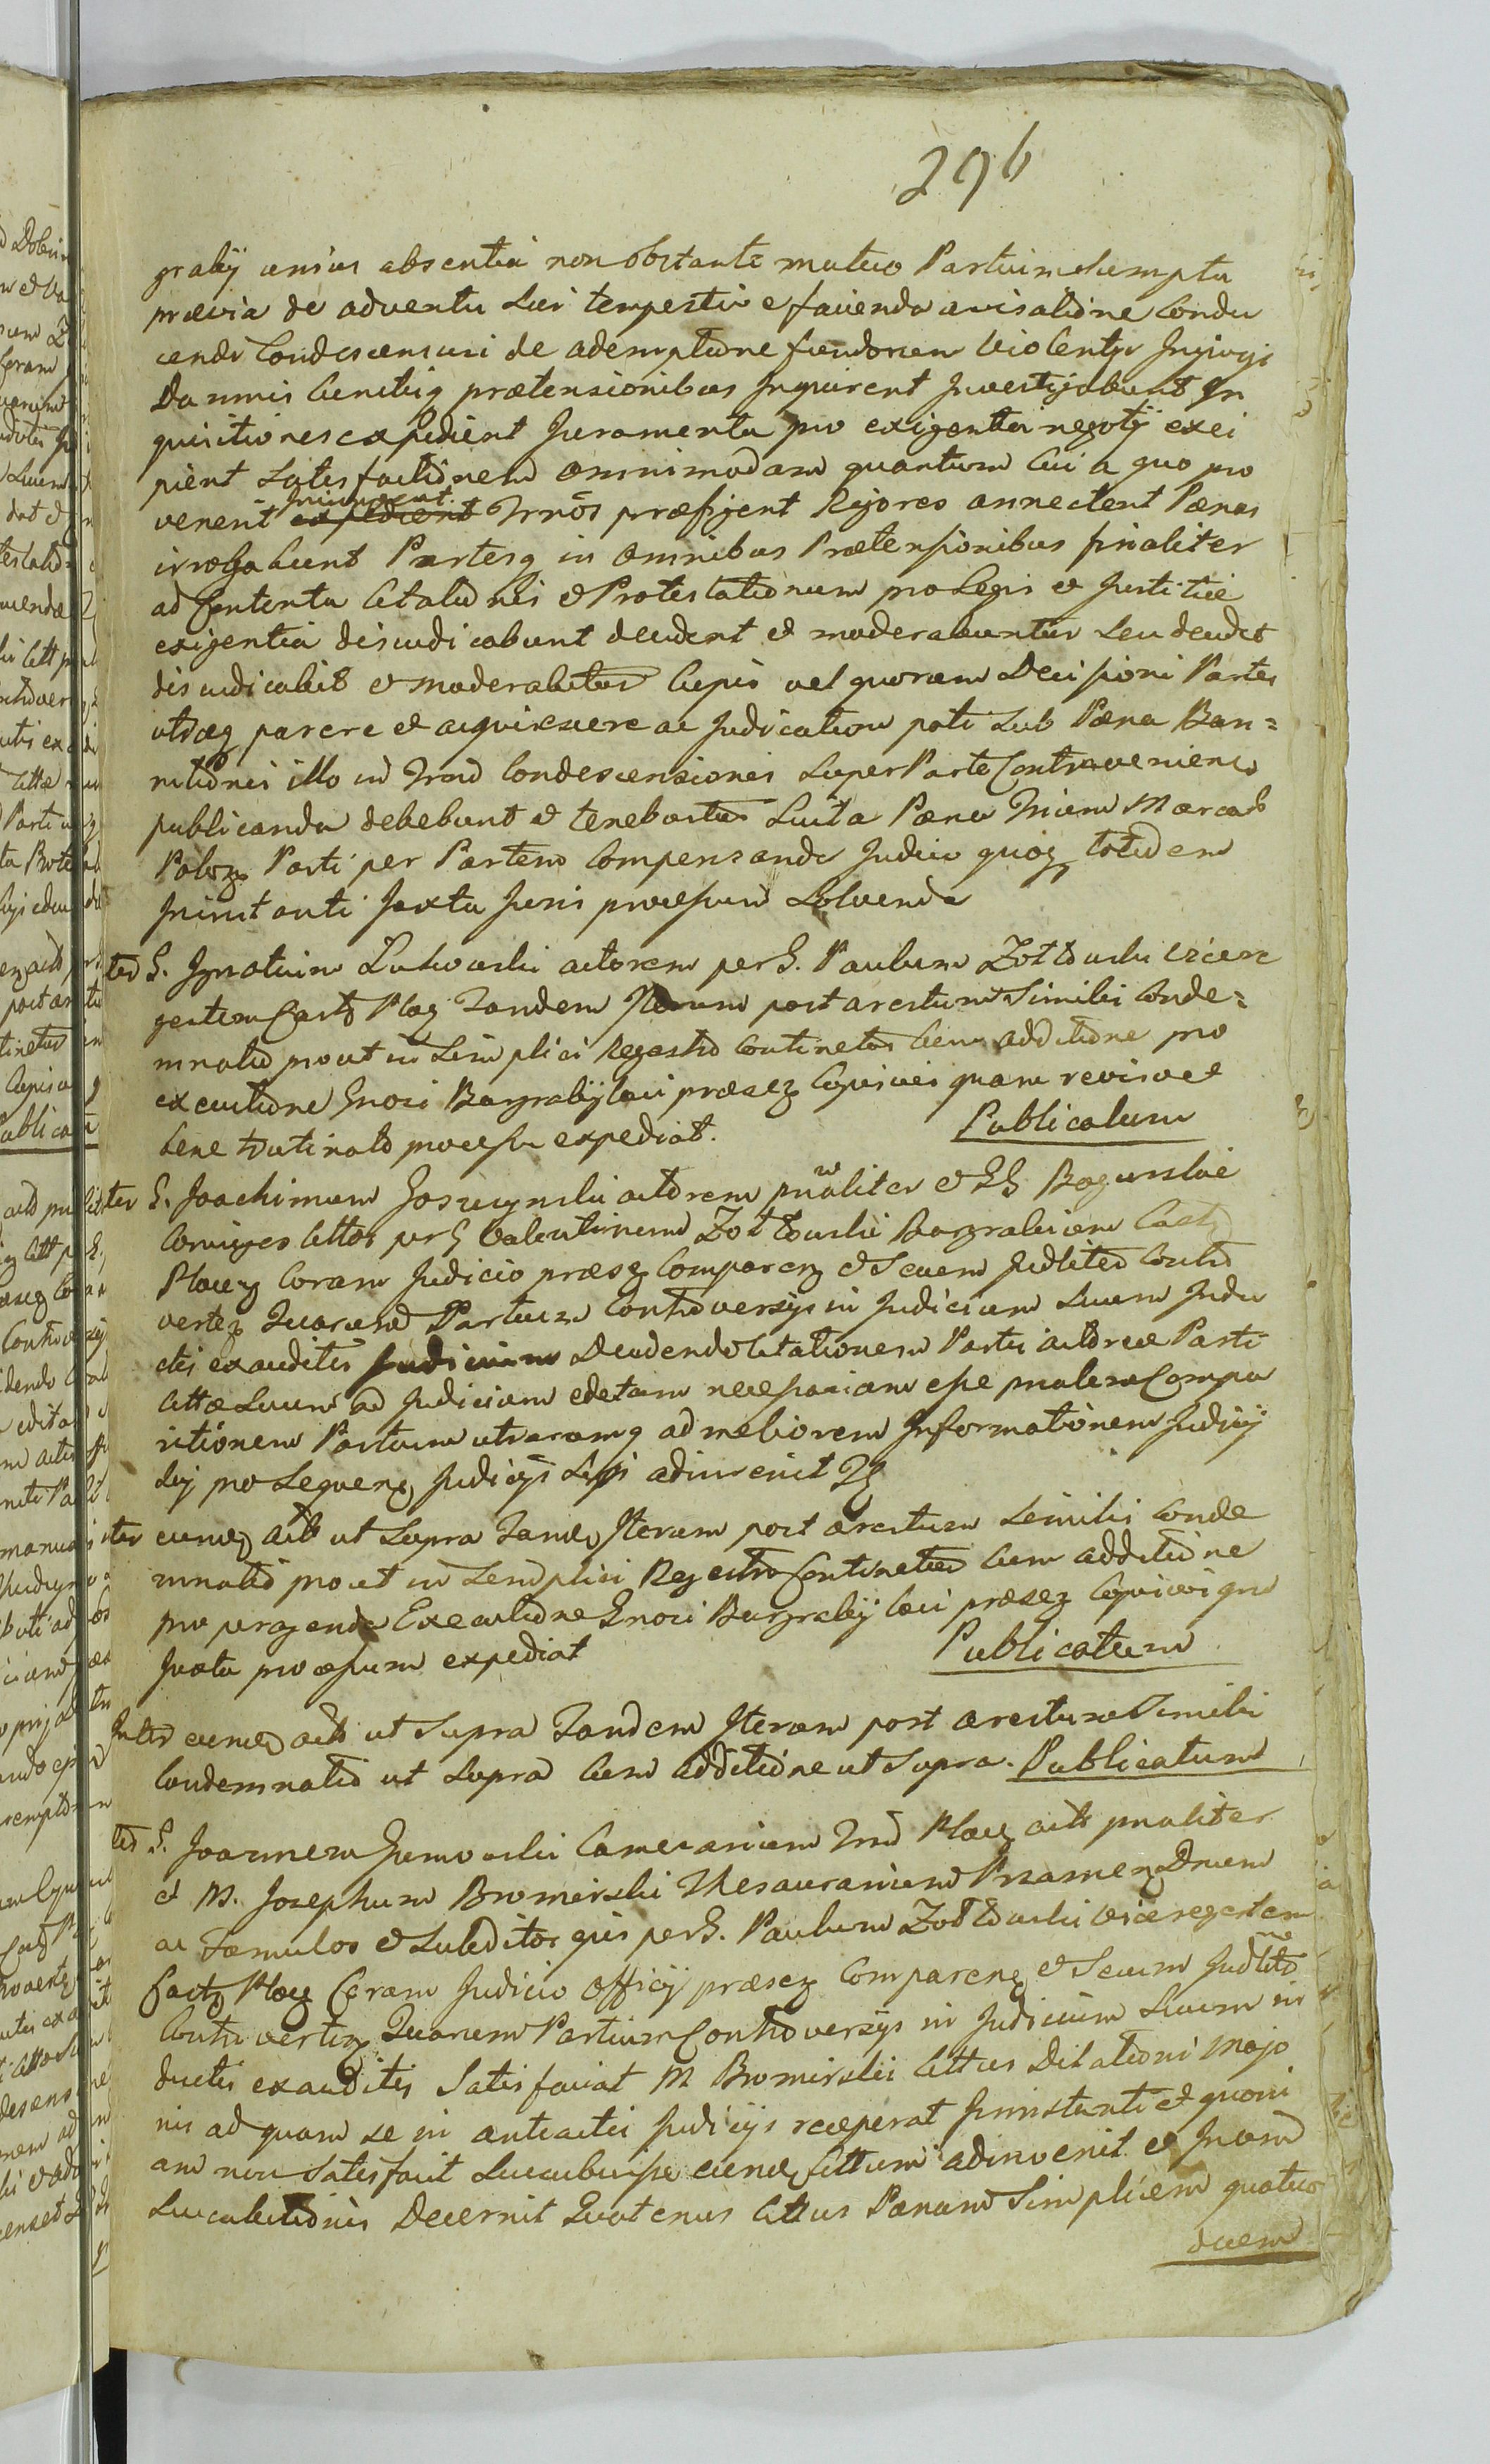 296
grabij unius absentia non obstante mutuo Partium Sumptu
praevia de adventu Sui tempestive facienda avisatione Condu
cendi Condescensuri de ademptione fundorum violentijs Injurijs
Damnis Cunctisq praetensionibus Inquirent Investigabunt In
quisitiones expedient Juramenta pro exigentia negotij exci
pient Satisfactionem omnimodam quantum Cui a quo pro
venerit Injungent expedient Trnos praefigent Rigores annectent Paenas
irrogabunt Partesq in omnibus Praetensionibus finaliter
ad Contenta Citationis et Protestationum pro Legis et Justitiae
exigentia dijudicabunt decident et moderabuntur Seu decidet
dijudicabit et moderabitur Cujus vel quorum Decisioni Partes
utraeq parere et acquiescere ac Judicatum pati Sub Paena Ban=
nitionis illo in Trno Condescensionis Super Parte Contraveniend
publicanda debebunt et tenebuntur Luita Paena Trium Marcarum
Polon Parti per Partem Compensanda Judicio quoq totidem
Juris tanti Juxta Juris praescriptum Solvenda
ter G. Ignatium Lukowski actorem per G. Paulum Zołtowski vicere
gentem Castr Ploc Tandem Iterum post arestum Similis Conde=
mnatio prout in Simplici Regestro Continetur Cum additione pro
executione Gnosi Burgrabij loci praesen Cujusvis quam revisa et
bene trutinato processu expediat. Publicatum
ter G. Joachimum Goszczynski actorem pnaliter et GG Boguski
Conjuges Cittos per G Valentinum Zołtowski Burgrabium Castr
Plocen Coram Judicio praesen Comparen et Secum Judliter Contro
verten Quarum Partium Controversijs in Judicium Suum Indu
ctis exauditis Judicium Decidendo Citationem Partis actoreae Parti
Cittae Suum ad Judicium editam necessariam esse pnalem Compa
ritionem Partium utrarumq ad meliorem Informationem Judicij
Sui pro Sequen Judicijs Suis adinvenit
ter eund act ut Supra Tand Iterum post arestum Similis Conde
mnatio prout in Simplici Regestro Continetur Cum additione
pro peragenda Executione Gnosi Burgrabij loci praesen Cujusvis qui
Juxta processum expediat Publicatum
Inter eund act ut Supra Tandem Iterum post arestum Similis
Condemnatio ut Supra Cum additione ut Supra. Publicatum
ter G. Joannem Cameranium Trrae Ploc act pnaliter
et M. Josephum Bromirski Thesaurarium Dnum
ac Famulos et Subditos ejus per G. Paulum Zołtowski viceregentem
Castr Ploc Coram Judicio Officij praesen Comparen et Secum Judliter
Controverten Quarum Partium Controversijs in Judicium Suum in
ductis exauditis Satisfaciat M Bromirski Cittus Dilationi Majo
ris ad quam se in anteactis Judicijs receperat Juris tanti et quoni
am non Satisfacit Succubuisse eund Cittum adinvenit et Trnum
Succubitionis Decernit Quatenus Cittus Paenam Simplicem quatuor
decem